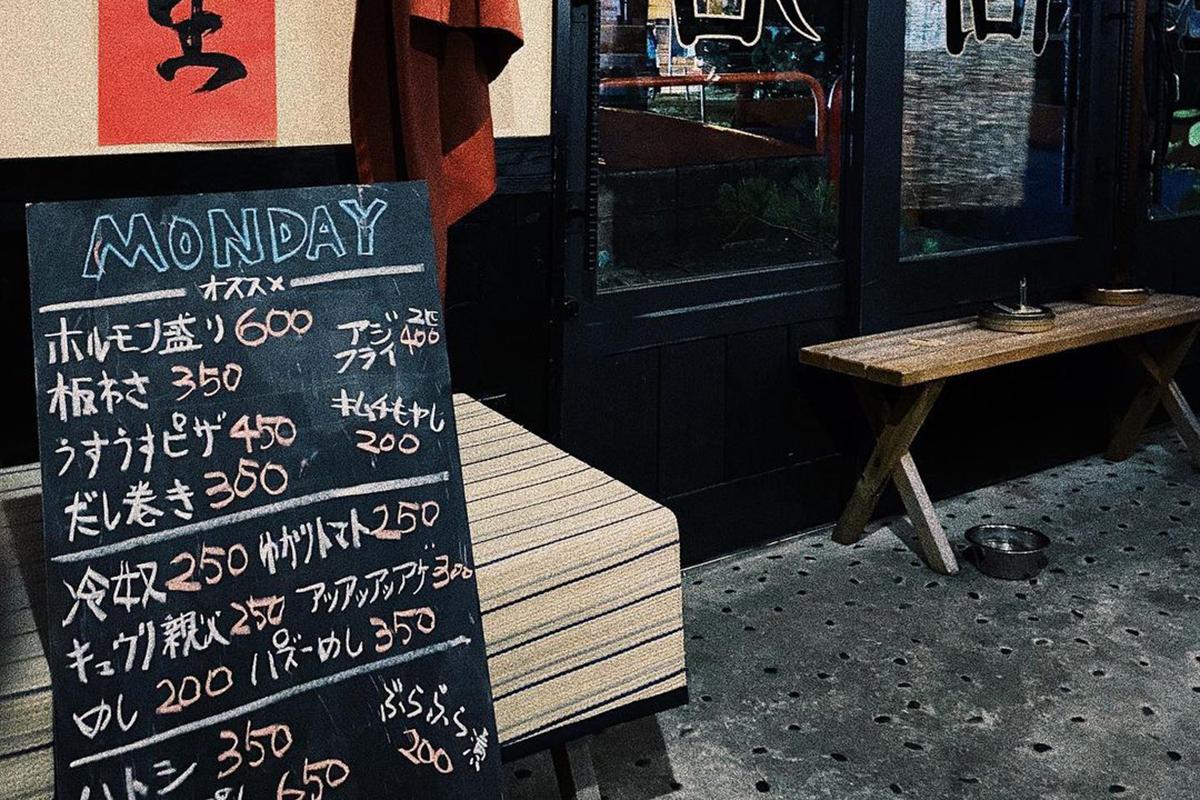 MONDAY
オススメ
ホルモン盛り 600
アジフライ 2匹 400
板わさ 350
キムチもやし 200
うすうすピザ 450
だし巻き 350
冷奴 250 ゆかりトマト 250
キュウリ親父 250 アツアツアツアゲ 300
めし 200 パズーめし 350
ハトシ 350
ぶらぶら漬 200
650